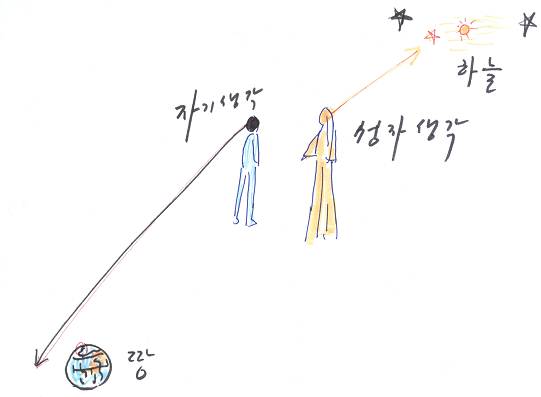 하늘
자기생각
성자생각
땅